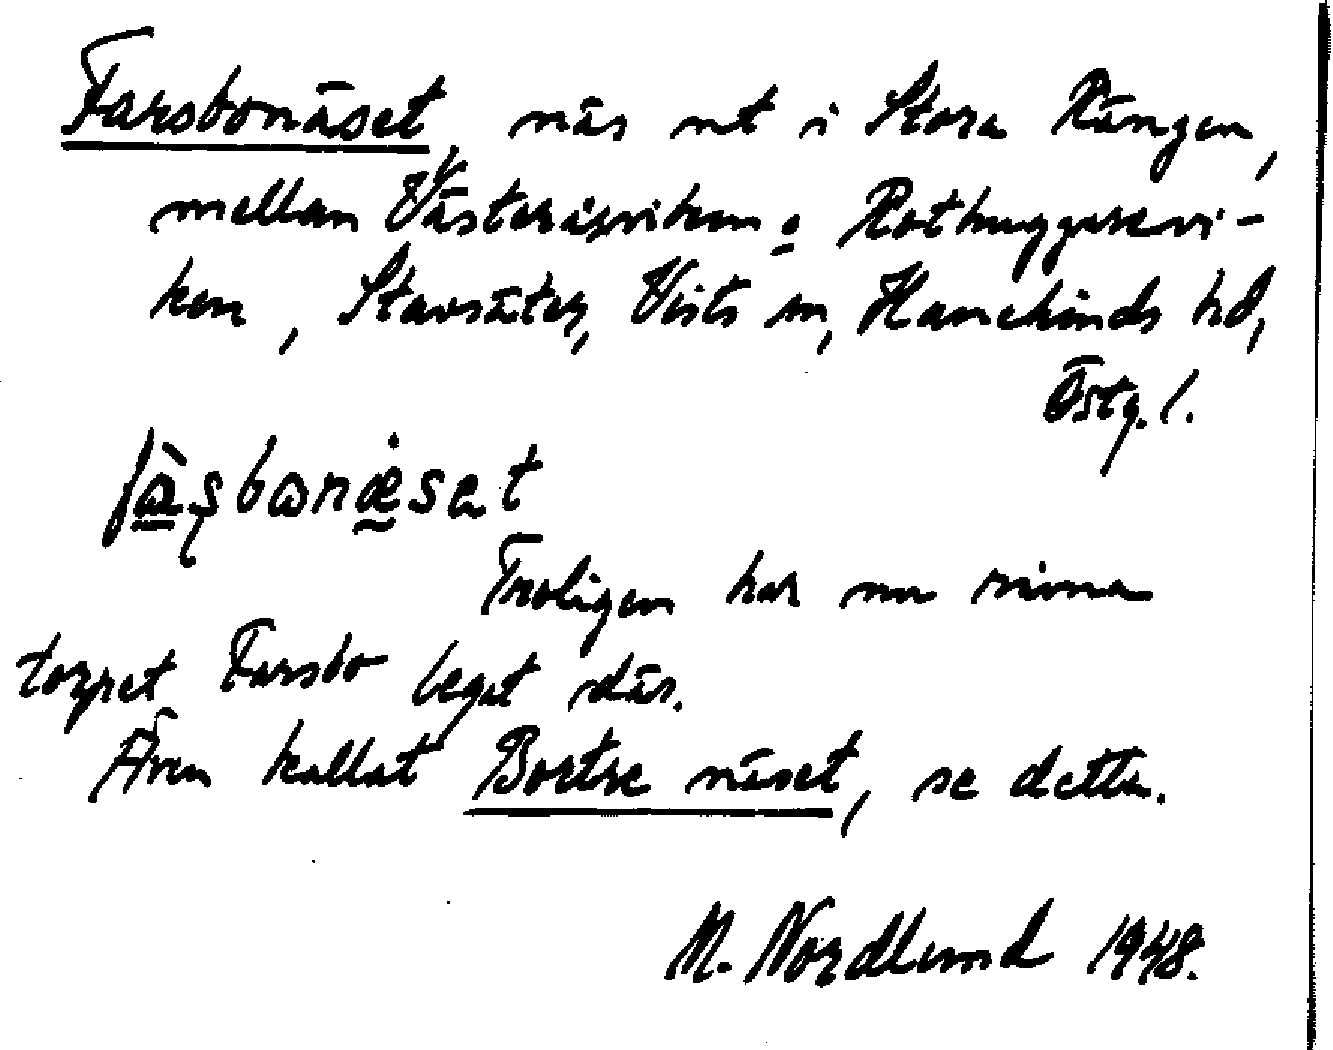 Farsbonäset, näs nt i Stora Rängen,
mellan Västeråsviken o Rothuggarevi-
ken, Stavsäter, Vists sn, Hanekinds hd,
Östg. l.
Troligen har nu rivna
torpet Farsbo legat där.
Även kallat Bortre näset, se detta.
N. Nordlund 1948.